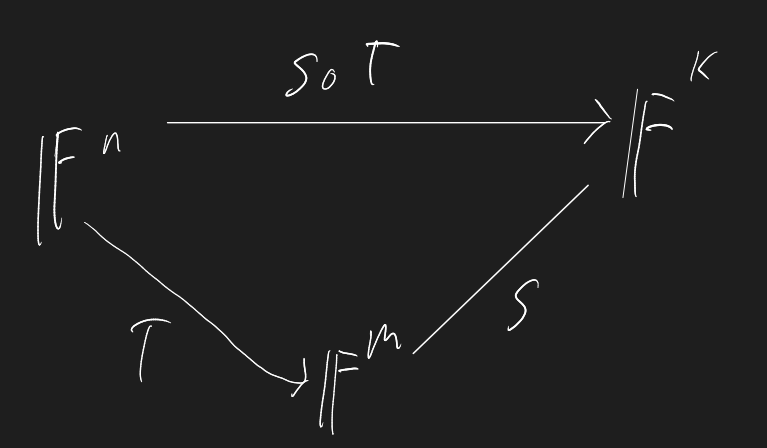 S∘T
𝔽ⁿ
𝔽ᴷ
T
S
𝔽ᵐ